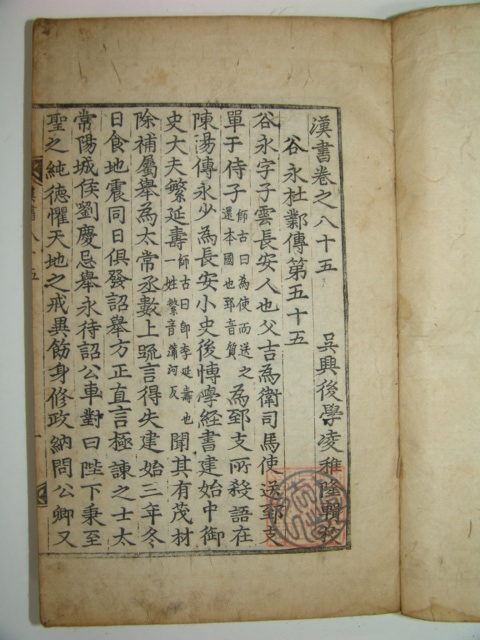 漢書卷之八十五
吳興後學凌稚隆輯校
谷永杜鄴傳第五十五
谷永字子雲長安人也父吉為衛司馬使送郅支
單于侍子師古曰為使而送之還本國也郅音質為郅支所殺語在
陳湯傳永少為長安小史後愽學經書建始中御
史大夫繁延壽師古曰即李延壽也一姓繁音蒲河反聞其有茂材
除補屬舉為太常丞數上䟽言得失建始三年冬
日食地震同日俱發詔舉方正直言極諫之士太
常陽城侯劉慶忌舉永待詔公車對曰陛下秉至
聖之純德懼天地之戒異飭身修政納問公卿又